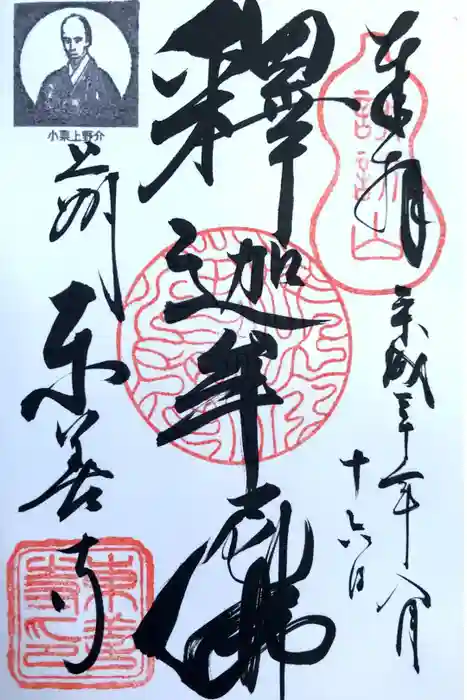 奉拝
諏訪山
平成三十年八月
十六日
釋迦牟尼佛
小栗上野介
上州
東善寺
東善
寺印